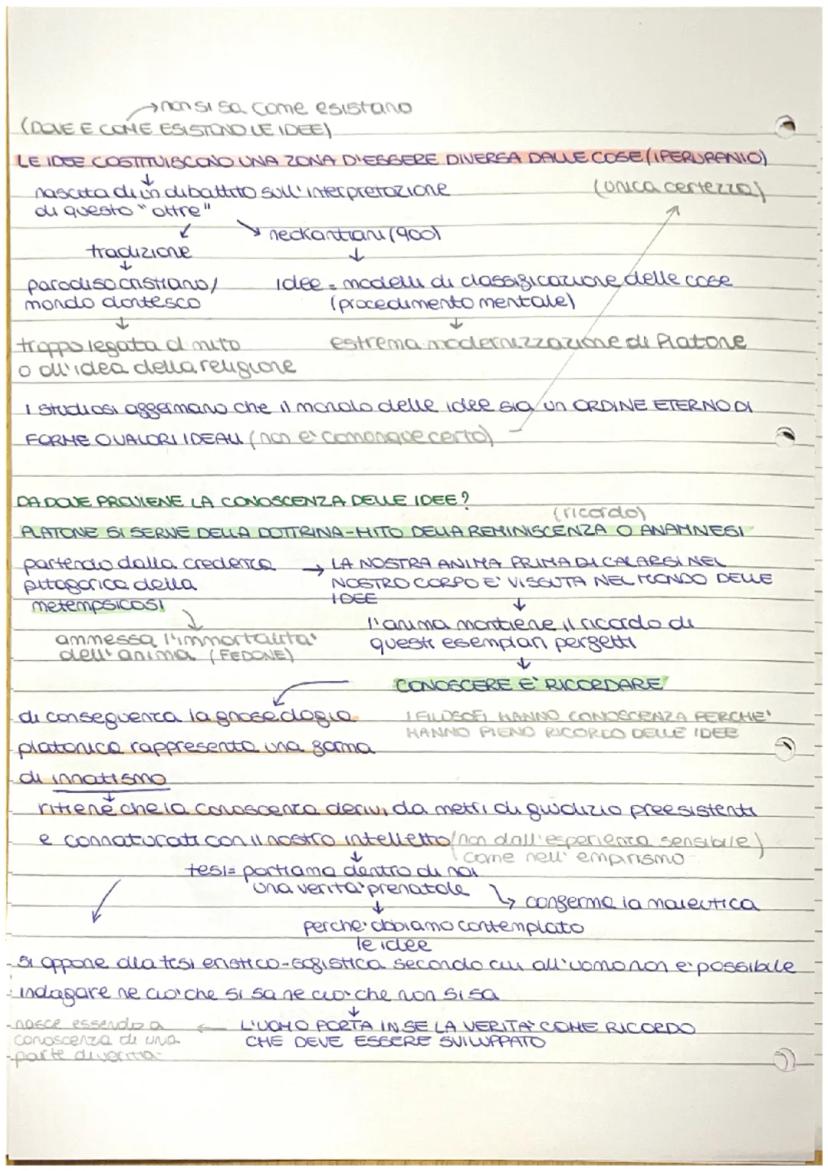 →non si sa come esistano
(DOVE E COME ESISTONO LE IDEE)
LE IDEE COSTITUISCONO UNA ZONA D'ESSERE DIVERSA DALLE COSE (IPERURANIO)
nascita di un dibattito sull'interpretazione (unica certezza)
di questo "oltre"
neokantiani (900)
tradizione
paradiso cristiano/ idee = modelli di classificazione delle cose
mondo dantesco (procedimento mentale)
troppo legata al mito estrema modernizzazione di Platone
o all'idea della religione
I studiosi affermano che il mondo delle idee sia un ORDINE ETERNO DI
FORME O VALORI IDEALI (non e' comonque certo)
DA DOVE PROVIENE LA CONOSCENZA DELLE IDEE?
(ricordo)
PLATONE SI SERVE DELLA DOTTRINA-MITO DELLA REMINISCENZA O ANAMNESI
partendo dalla credenza → LA NOSTRA ANIMA PRIMA DI CALARSI NEL
pitagorica della NOSTRO CORPO E' VISSUTA NEL MONDO DELLE
metempsicosi IDEE
l'anima mantiene il ricordo di
ammessa l'immortalita' questi esemplari perfetti
dell'anima (FEDONE)
CONOSCERE E' RICORDARE
di conseguenza la gnoseologia I FILOSOFI HANNO CONOSCENZA PERCHE'
platonica rappresenta una forma HANNO PIENO RICORDO DELLE IDEE
di innatismo
ritiene che la conoscenza derivi da metri di giudizio preesistenti
e connaturati con il nostro intelletto (non dall'esperienza sensibile)
come nell'empirismo
tesi= portiamo dentro di noi
una verita' prenatale → conferma la maieutica
perche' abbiamo contemplato
le idee
si oppone alla tesi eristico-sofistica secondo cui all'uomo non e' possibile
indagare ne cio' che si sa ne cio' che non si sa
nasce essendo a ← L'UOMO PORTA IN SE LA VERITA' COME RICORDO
conoscenza di una CHE DEVE ESSERE SVILUPPATO
parte di verita'